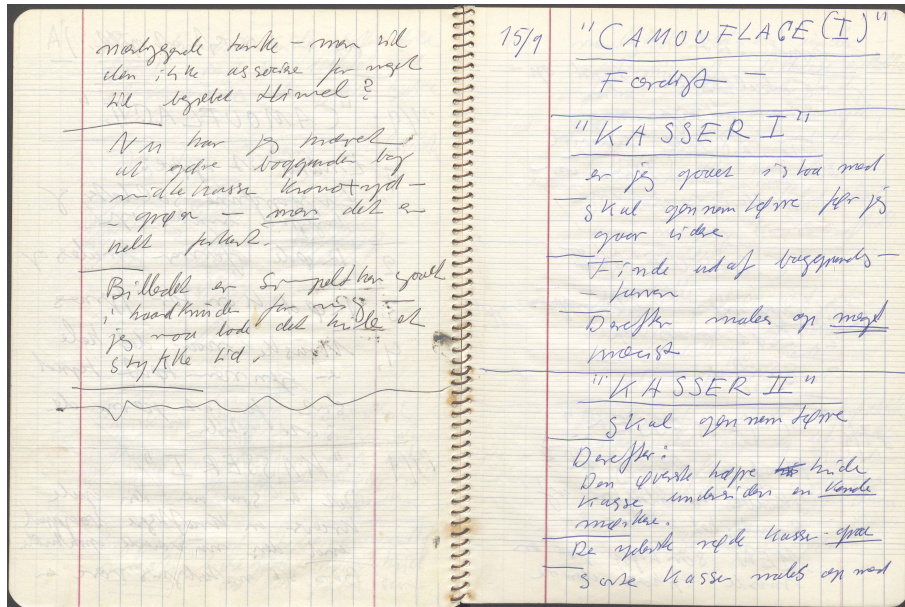 nærliggende tanke – men vil
den ikke associere for meget
til begrebet Himmel?
Nu har jeg prøvet
at gøre baggrunden bag
kasse
– men det er
helt forkert.
Billedet er simpelthen gaaet
i haardknude for mig –
jeg maa lade det hvile et
stykke tid.
15/9 "CAMOUFLAGE (I)"
Færdigt –
"KASSER I"
er jeg gaaet istaa med
skal gennemtørre før jeg
gaar videre
Finde ud af baggrunds-
- farven
Derefter males op meget
præcist
"KASSER II"
skal gennemtørre
Derefter:
Den øverste højre hvide
kasse undersiden en
mørkere.
De yderste røde kasser
Sorte kasser males op med